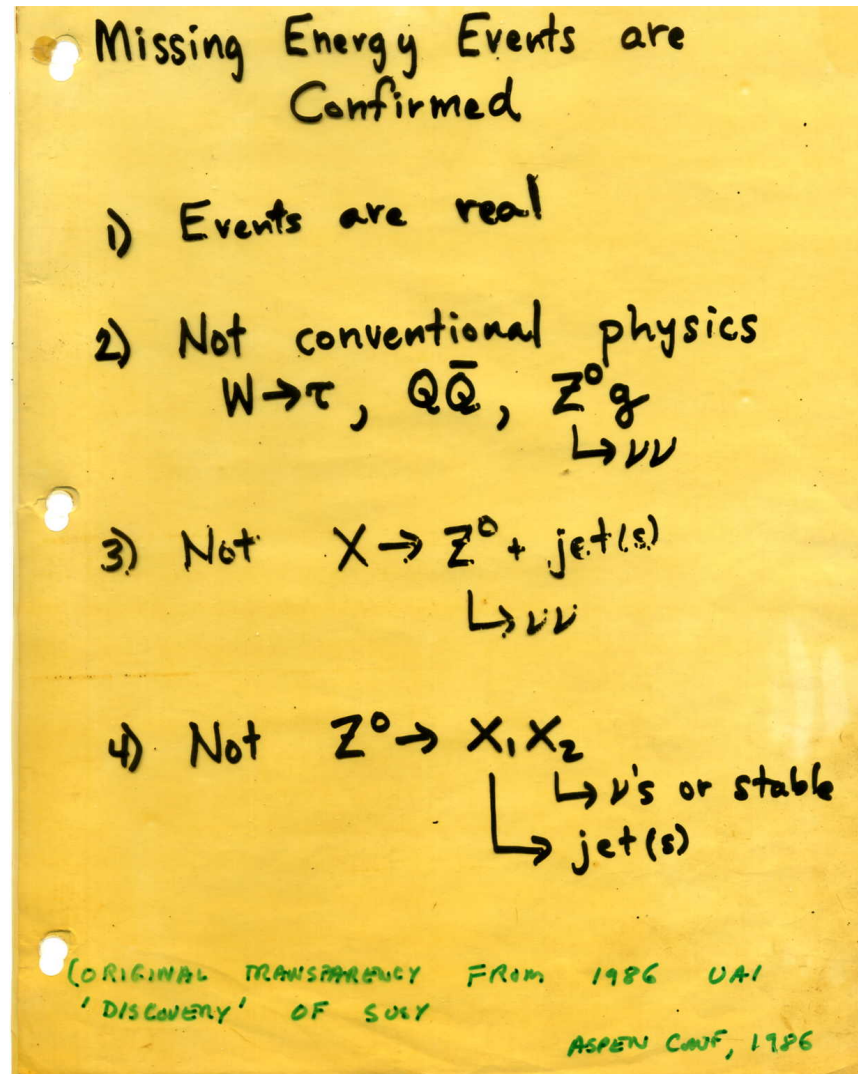 Missing Energy Events are
Confirmed
1) Events are real
2) Not conventional physics
W→τ, QQ̄, Z⁰g
↳νν
3) Not X→ Z⁰+ jet(s)
↳νν
4) Not Z⁰→ X₁X₂
↳ν's or stable
↳jet(s)
(ORIGINAL TRANSPARENCY FROM 1986 UA1
'DISCOVERY' OF SUSY
ASPEN CONF, 1986